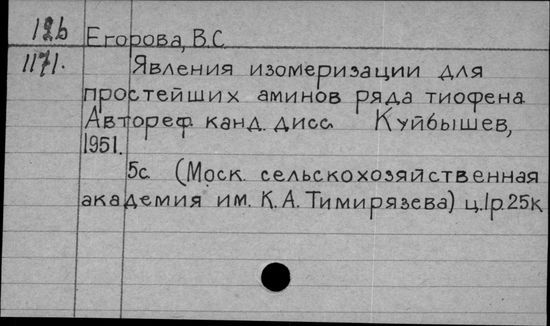 12b Егорова, В.С.
1171. Явления изомеризации для
простейших аминов ряда тиофена
Автореф канд. дисс. Куйбышев,
1951.
5с. (Моск. сельскохозяйственная
академия им. К.А.Тимирязева) ц.1р.25к